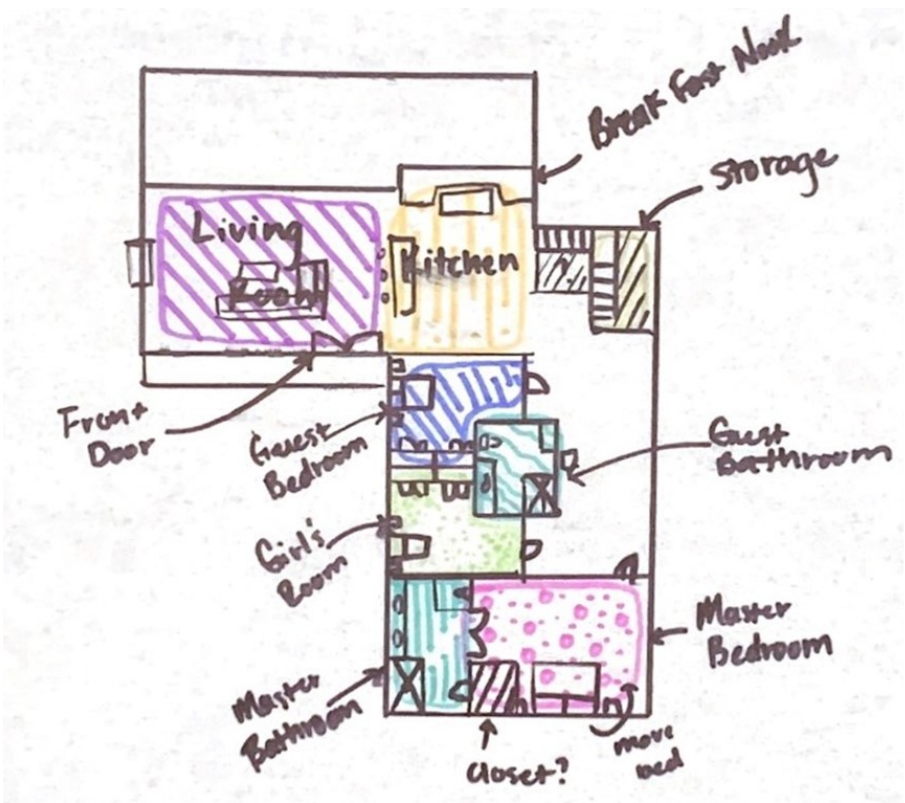 Break Fast Nook
Storage
Living
Room
Kitchen
Front
Door
Guest
Bedroom
Guest
Bathroom
Girl's
Room
Master
Bedroom
Master
Bathroom
Closet?
move
bed